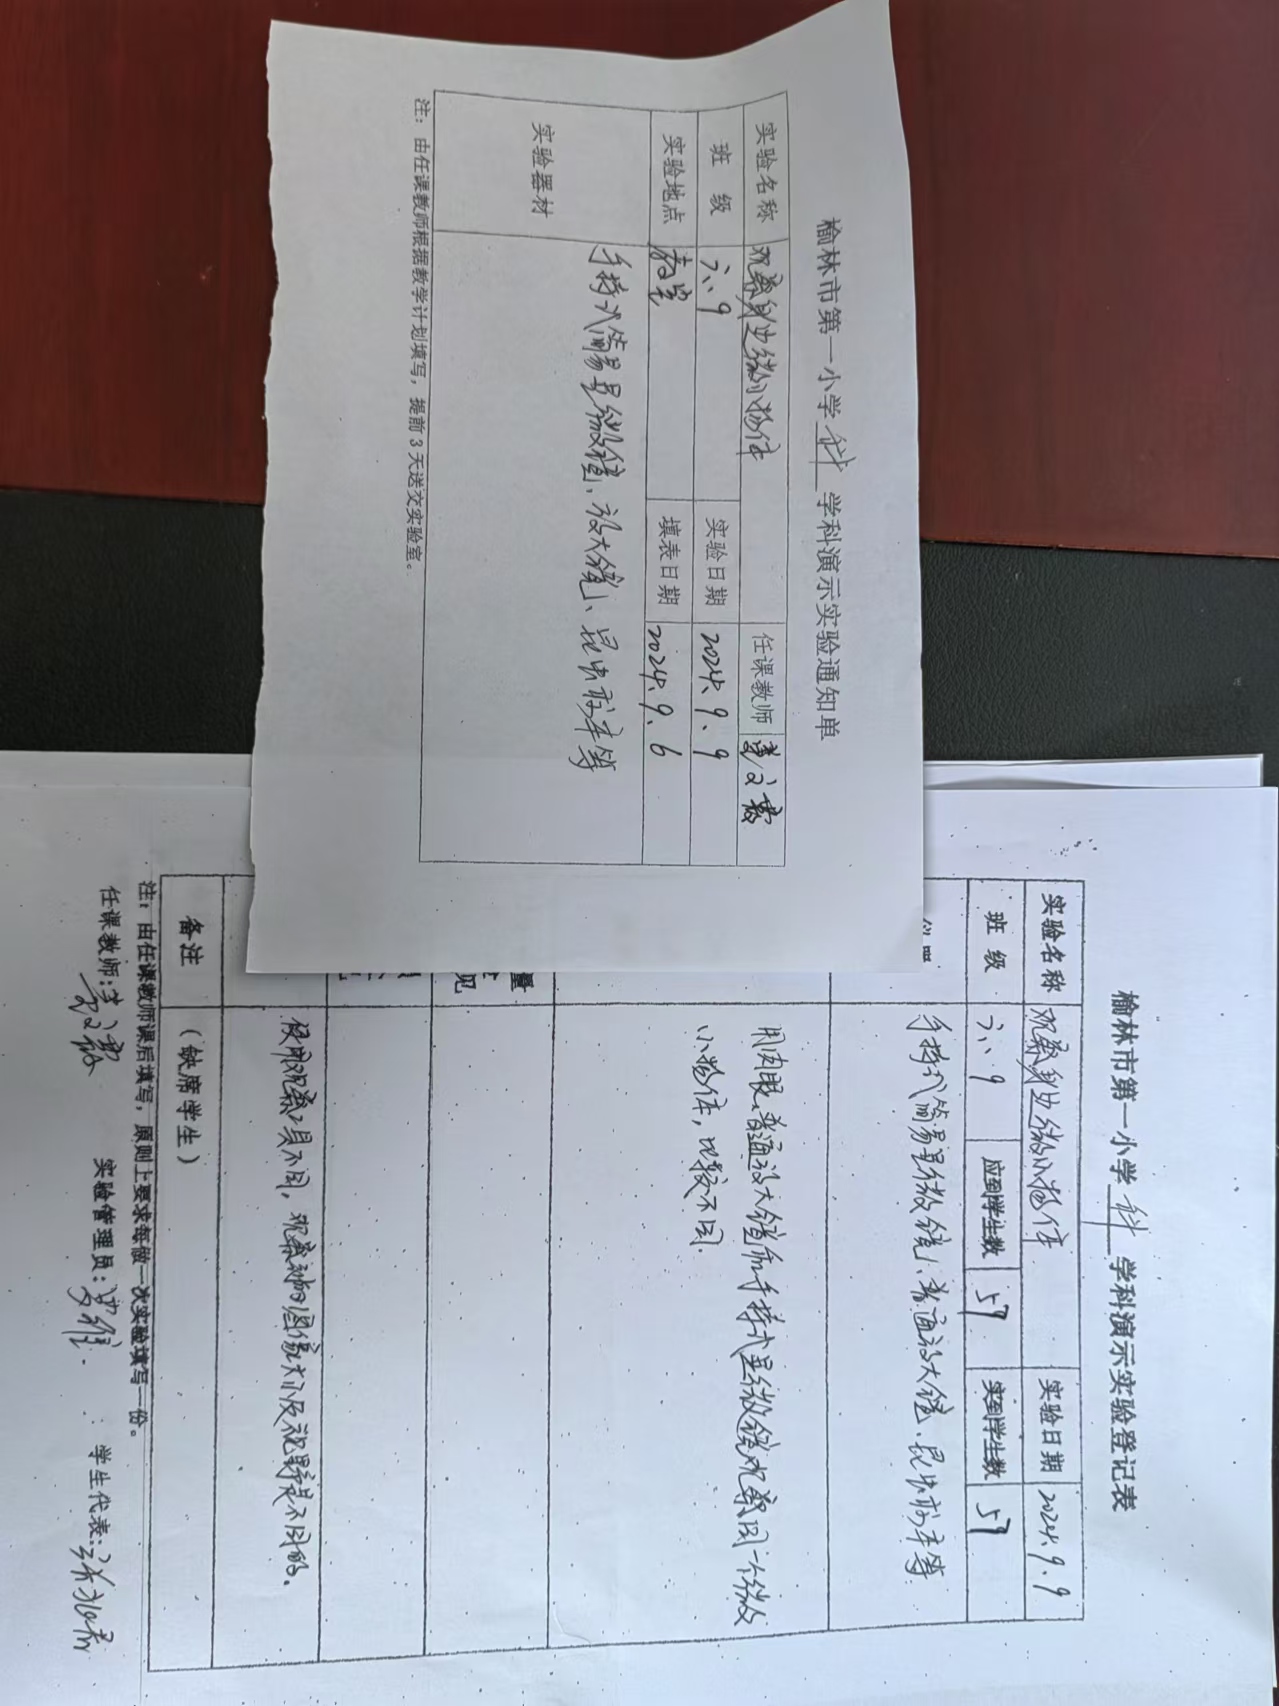 榆林市第一小学科学科演示实验通知单
实验名称 观察身边微小物体 任课教师
班 级 六.9 实验日期 2024.9.9
实验地点 教室 填表日期 2024.9.6
实验器材 手持式简易显微镜、放大镜、昆虫标本等
注：由任课教师根据教学计划填写，提前3天送交实验室。
榆林市第一小学科学科演示实验登记表
实验名称 观察身边微小物体 实验日期 2024.9.9
班 级 六.9 应到学生数 59 实到学生数 59
手持式简易显微镜、普通放大镜、昆虫标本等
用肉眼、普通放大镜和手持式显微镜观察同一个微
小物体，比较不同.
量
见
使用观察工具不同，观察到的图像大小及视野是不同的.
备注 （缺席学生）
注：由任课教师课后填写，原则上要求每做一次实验填写一份。
任课教师: 实验管理员: 学生代表: